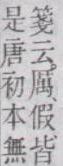 箋云厲假皆
是唐初本無